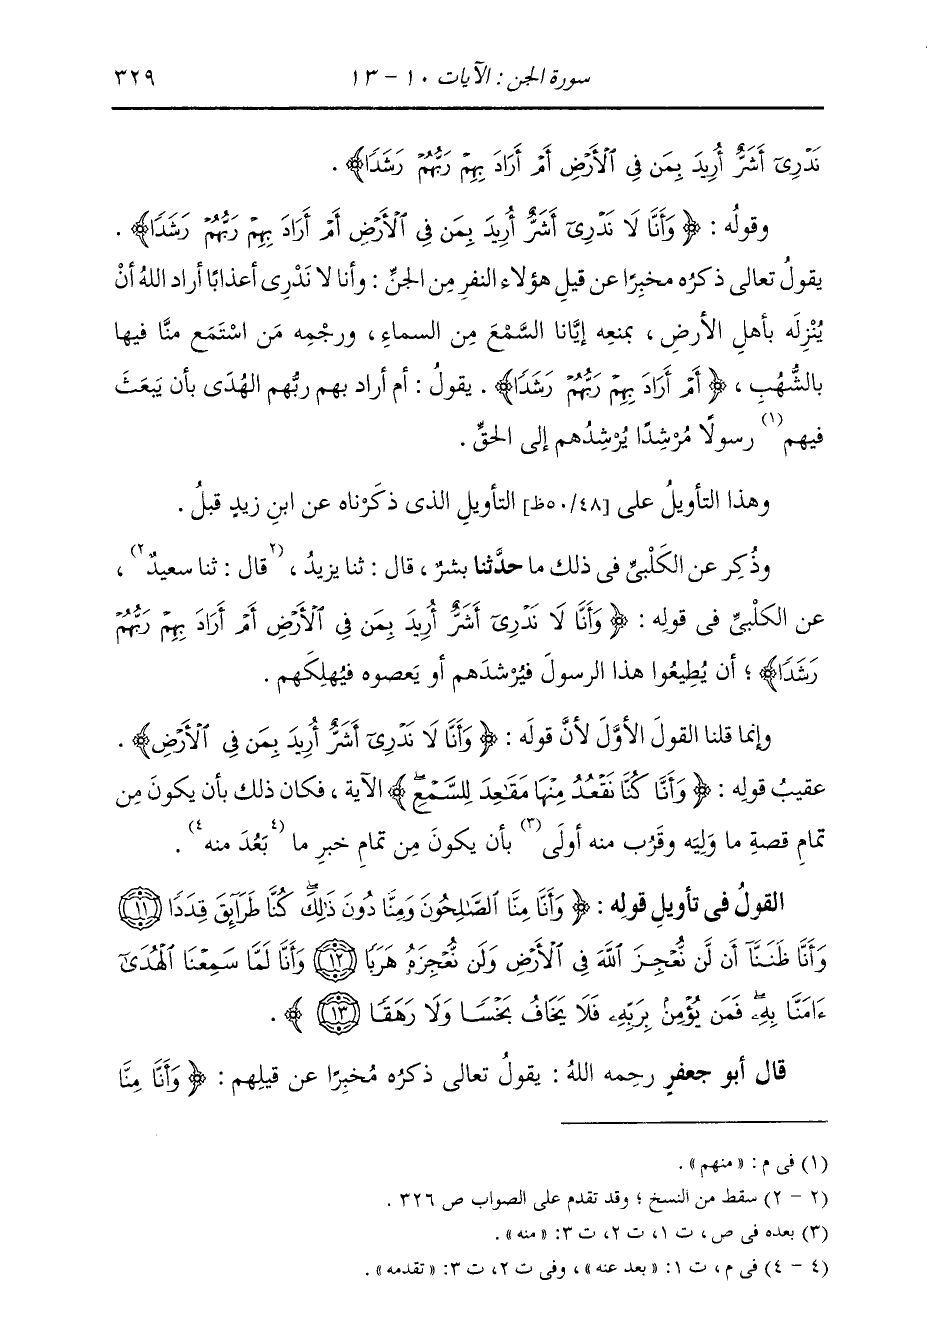 سورة الجن : الآيات ١٠ - ١٣ ٣٢٩
نَدْرِىٓ أَشَرٌّ أُرِيدَ بِمَن فِى ٱلْأَرْضِ أَمْ أَرَادَ بِهِمْ رَبُّهُمْ رَشَدًا﴾ .
وقولُه : ﴿ وَأَنَّا لَا نَدْرِىٓ أَشَرٌّ أُرِيدَ بِمَن فِى ٱلْأَرْضِ أَمْ أَرَادَ بِهِمْ رَبُّهُمْ رَشَدًا﴾ .
يقولُ تعالى ذكرُه مخبِرًا عن قيلِ هؤلاء النفرِ مِن الجنِّ : وأنا لا نَدْرِى أعذابًا أراد اللهُ أنْ
يُنْزِلَه بأهلِ الأرضِ ، بمنعِه إيَّانا السَّمْعَ مِن السماءِ ، ورجْمِه مَن اسْتَمَع منَّا فيها
بالشُّهُبِ ، ﴿ أَمْ أَرَادَ بِهِمْ رَبُّهُمْ رَشَدًا﴾ . يقولُ : أم أراد بهم ربُّهم الهُدَى بأن يَبعَثَ
فيهم(١) رسولًا مُرْشِدًا يُرْشِدُهم إلى الحقِّ .
وهذا التأويلُ على [٥٠/٤٨ظ] التأويلِ الذى ذكَرْناه عن ابنِ زيدٍ قبلُ .
وذُكِر عن الكَلْبىِّ فى ذلك ما حدَّثنا بشرٌ ، قال : ثنا يزيدُ ، (٢قال : ثنا سعيدٌ٢) ،
عن الكلْبىِّ فى قولِه : ﴿ وَأَنَّا لَا نَدْرِىٓ أَشَرٌّ أُرِيدَ بِمَن فِى ٱلْأَرْضِ أَمْ أَرَادَ بِهِمْ رَبُّهُمْ
رَشَدًا﴾ ؛ أن يُطِيعُوا هذا الرسولَ فيُرْشدَهم أو يَعصوه فيُهلِكَهم .
وإنما قلنا القولَ الأوَّلَ لأنَّ قولَه : ﴿ وَأَنَّا لَا نَدْرِىٓ أَشَرٌّ أُرِيدَ بِمَن فِى ٱلْأَرْضِ﴾ .
عقيبُ قولِه : ﴿ وَأَنَّا كُنَّا نَقْعُدُ مِنْهَا مَقَٰعِدَ لِلسَّمْعِۖ ﴾ الآية ، فكان ذلك بأن يكونَ مِن
تمامِ قصةِ ما وَلِيَه وقَرُب منه أولَى(٣) بأن يكونَ مِن تمامِ خبرِ ما (٤بَعُدَ منه٤) .
القولُ فى تأويلِ قولِه : ﴿ وَأَنَّا مِنَّا ٱلصَّٰلِحُونَ وَمِنَّا دُونَ ذَٰلِكَۖ كُنَّا طَرَآئِقَ قِدَدًا ١١
وَأَنَّا ظَنَنَّآ أَن لَّن نُّعْجِزَ ٱللَّهَ فِى ٱلْأَرْضِ وَلَن نُّعْجِزَهُۥ هَرَبًا ١٢ وَأَنَّا لَمَّا سَمِعْنَا ٱلْهُدَىٰٓ
ءَامَنَّا بِهِۦۖ فَمَن يُؤْمِنۢ بِرَبِّهِۦ فَلَا يَخَافُ بَخْسًا وَلَا رَهَقًا ١٣ ﴾ .
قال أبو جعفرٍ رحِمه اللهُ : يقولُ تعالى ذكرُه مُخبِرًا عن قيلِهم : ﴿ وَأَنَّا مِنَّا
(١) فى م : « منهم » .
(٢ - ٢) سقط من النسخ ؛ وقد تقدم على الصواب ص ٣٢٦ .
(٣) بعده فى ص ، ت ١، ت ٢، ت ٣: « منه » .
(٤ - ٤) فى م ، ت ١: « بعد عنه » ، وفى ت ٢، ت ٣: « تقدمه » .